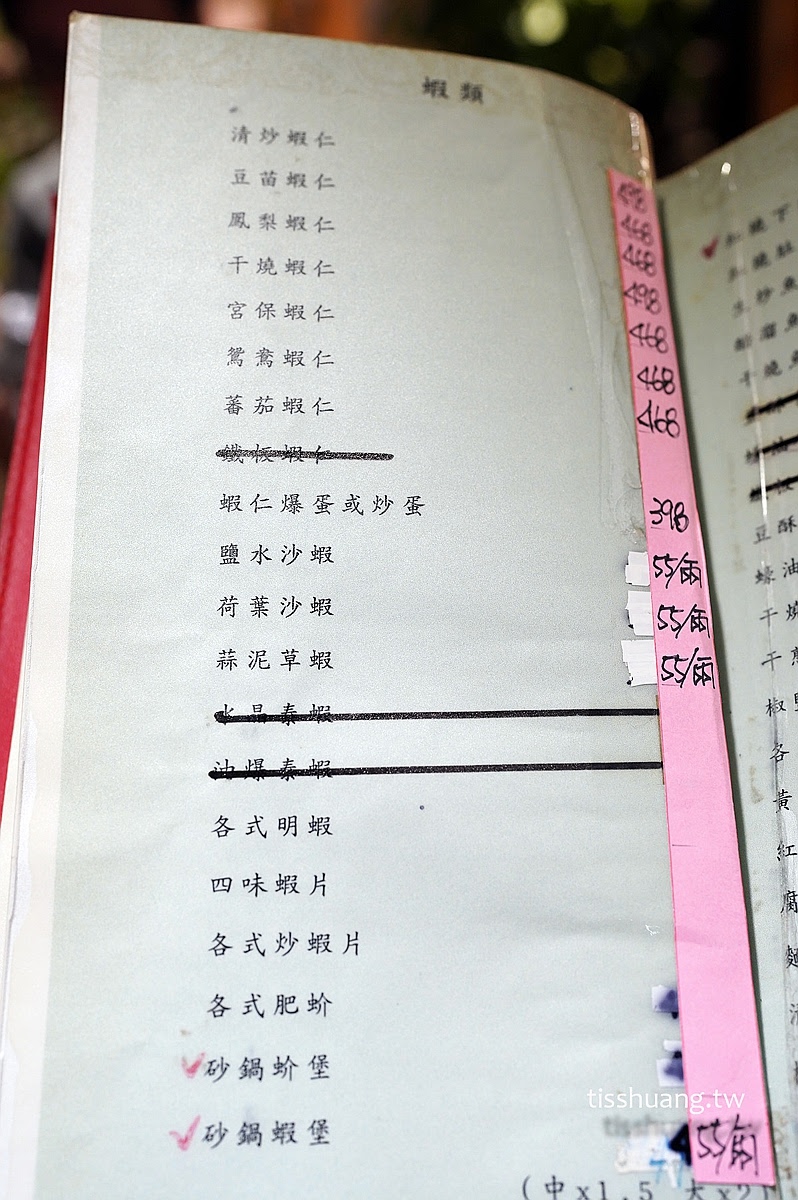 蝦類
清炒蝦仁 498
豆苗蝦仁 468
鳳梨蝦仁 468
干燒蝦仁 498
宮保蝦仁 468
鴛鴦蝦仁 468
蕃茄蝦仁 468
鐵板蝦仁
蝦仁爆蛋或炒蛋 398
鹽水沙蝦 55/兩
荷葉沙蝦 55/兩
蒜泥草蝦 55/兩
水晶泰蝦
油爆泰蝦
各式明蝦
四味蝦片
各式炒蝦片
各式肥蚧
砂鍋蚧堡
砂鍋蝦堡 55/兩
(中x1.5 大
紅燒下
紅燒肚
生炒魚
干燒魚
豆酥
蠔油
干燒
干煎
椒鹽
各
黃
紅
腐
tisshuang.tw